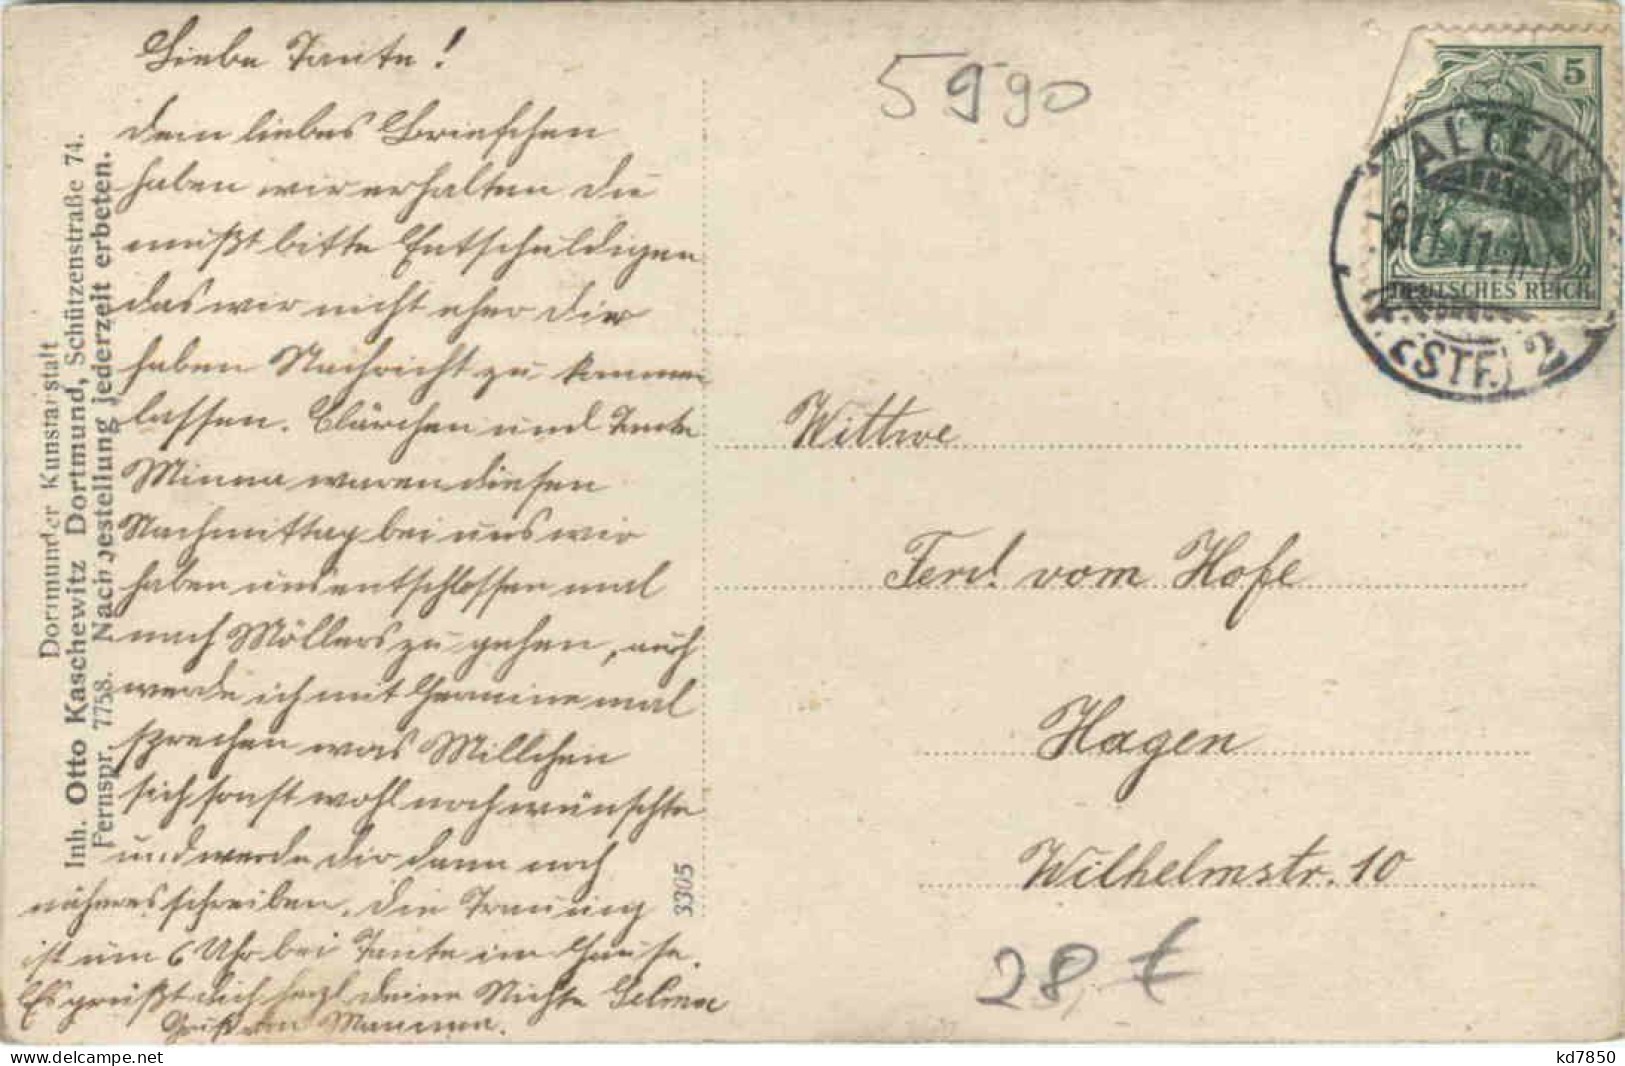 Liebe Tante!
Dein liebes Briefchen
haben wir erhalten du
mußt bitte Entschuldigen
das wir nicht eher dir
haben Nachricht zu kommen
lassen. Clärchen und Tante
Minna waren diesen
Nachmittag bei uns wir
haben uns entschlossen mal
nach Möllers zu gehen, auch
werde ich mit Hermine mal
sprechen was Millchen
sich sonst wohl noch wünschte
und werde dir dann noch
näheres schreiben. Die Trauung
ist um 6 Uhr bei Tante im Hause.
Es grüßt dich herzl. deine Nichte Selma
Gruß von Mamma.
Dortmunder Kunstanstalt
Inh. Otto Kaschewitz Dortmund, Schützenstraße 74.
Fernspr. 7758. Nachbestellung jederzeit erbeten.
3305
5990
5
DEUTSCHES REICH
ALTENA
(STF.) 2
Wittwe
Ferd. vom Hofe
Hagen
Wilhelmstr. 10
28,€
kd7850